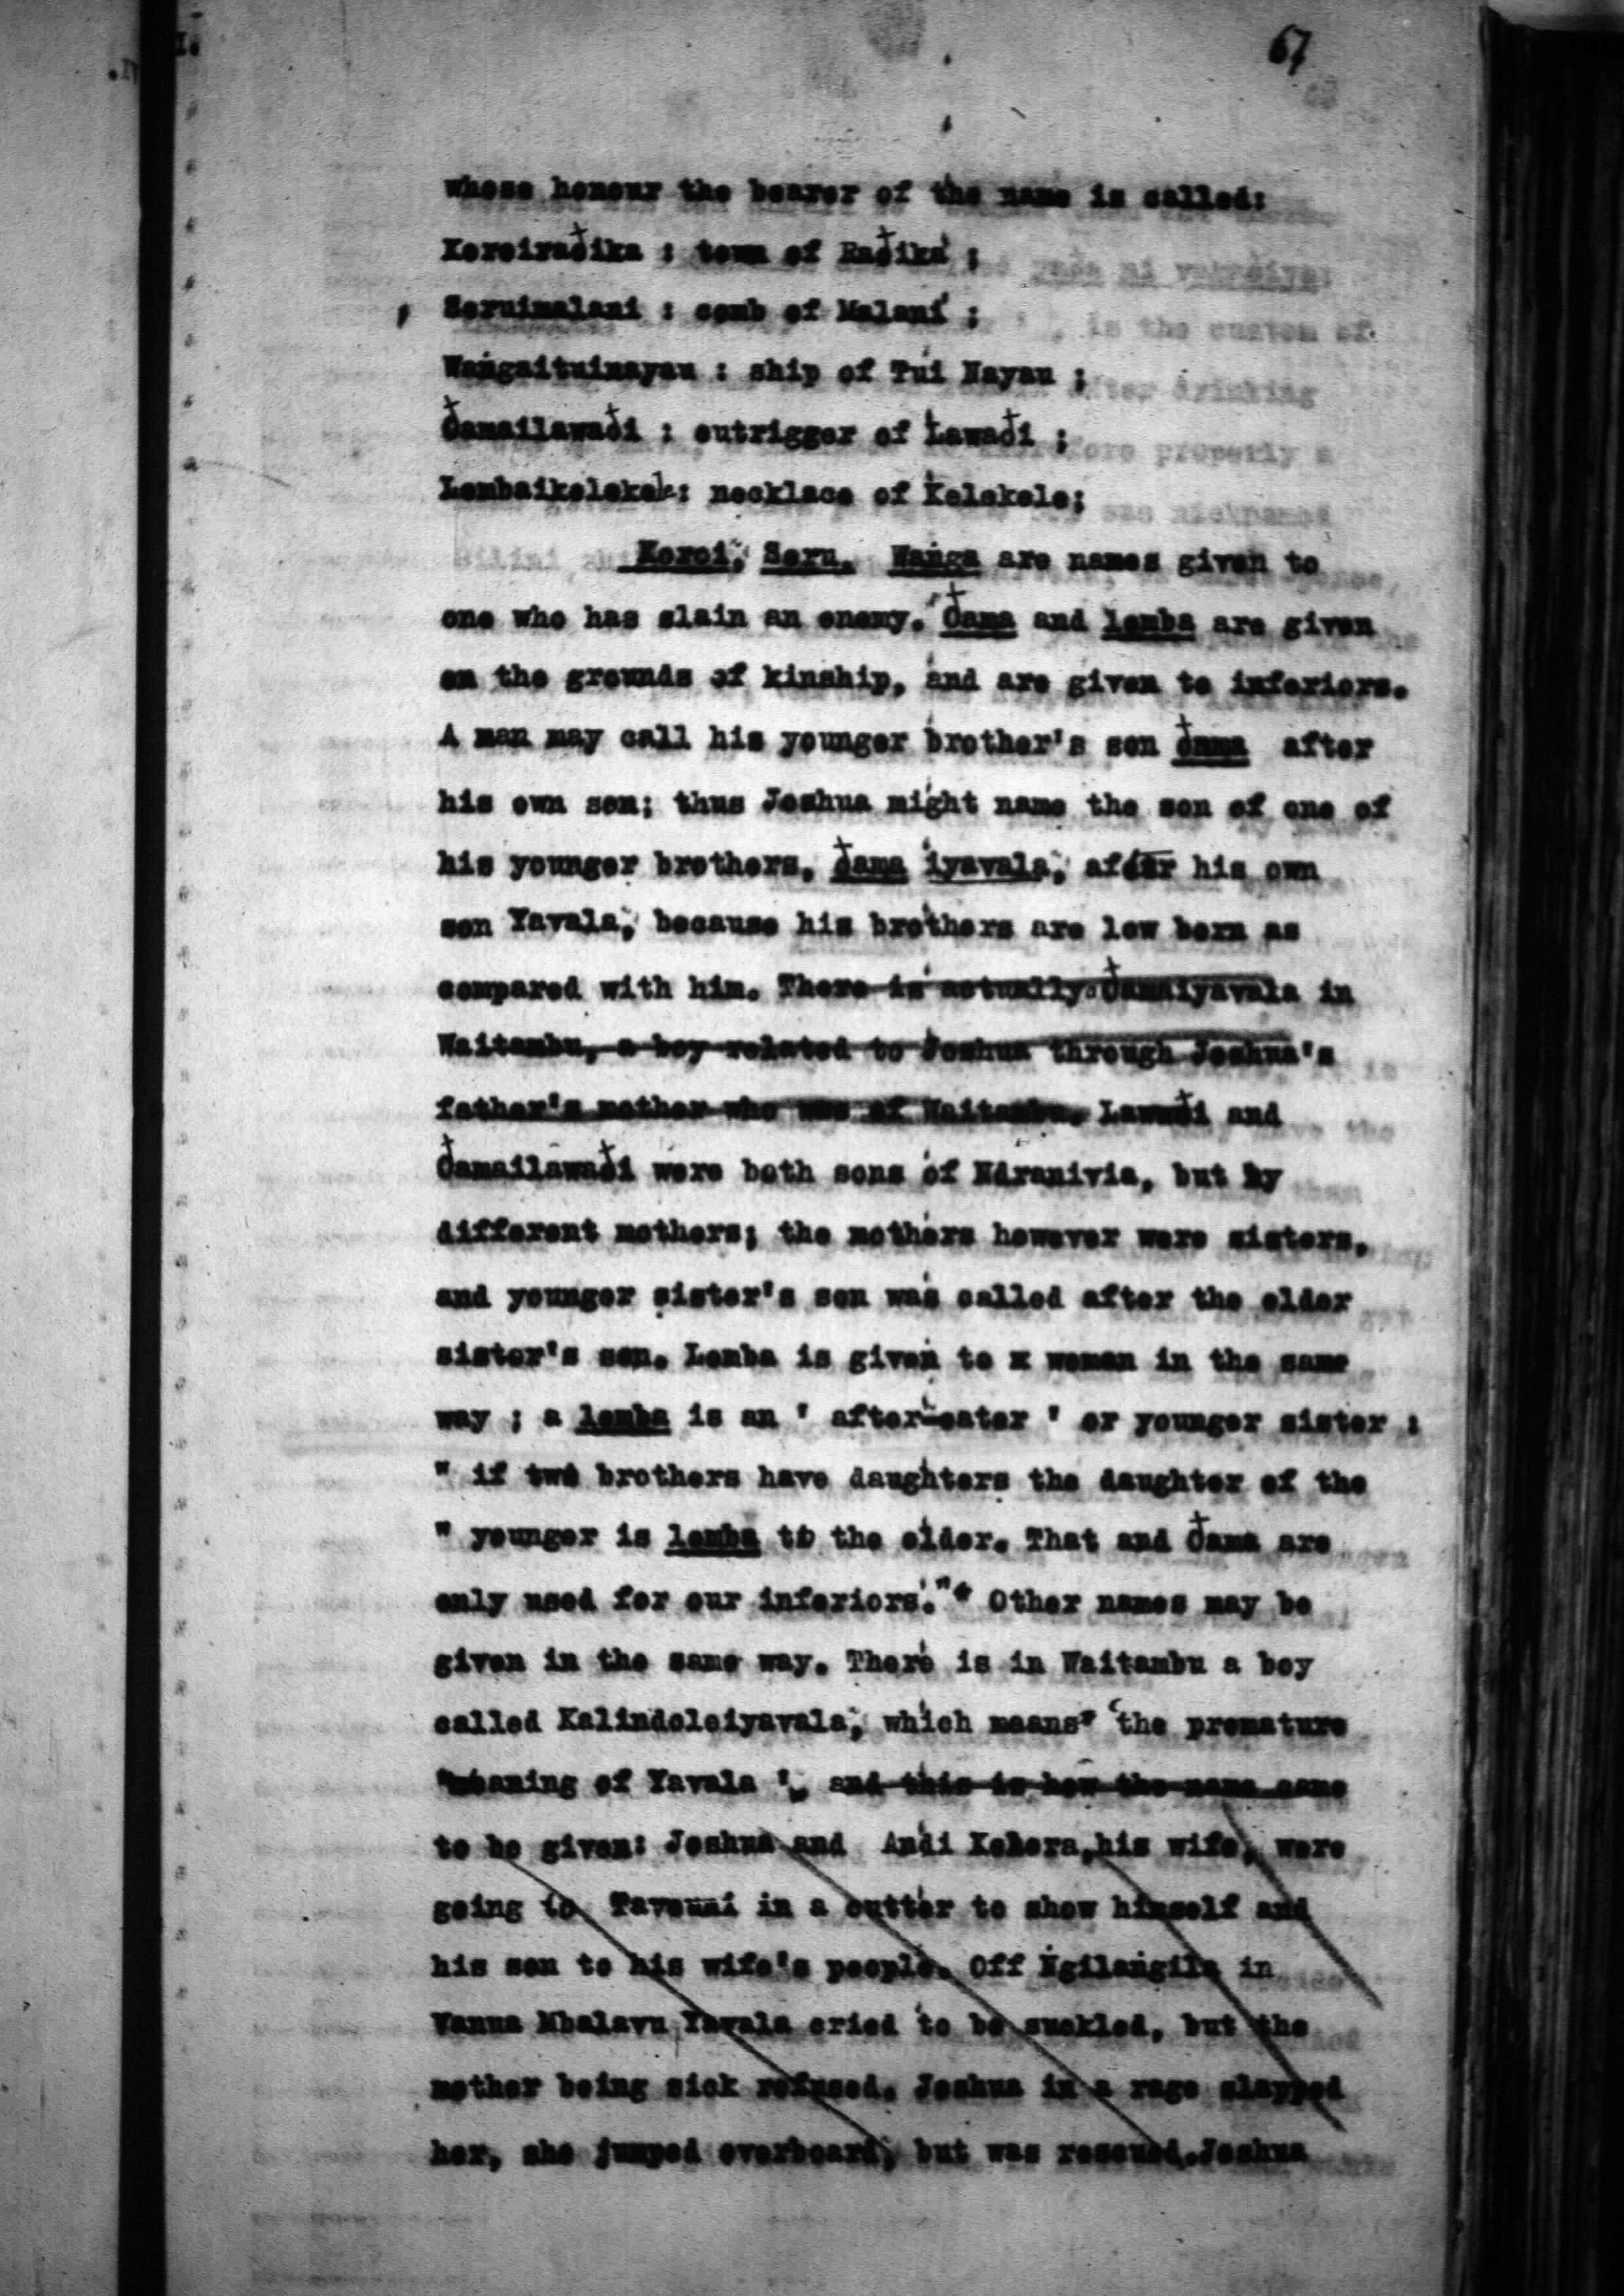 67
whose honour the bearer of the name is called:
Koroirað̵ika : town of Rað̵ika ;
Seruimalani : comb of Malani ;
Waṅgaituinayau : ship of Tui Nayau ;
Ð̵amailawað̵i : outrigger of Lawað̵i ;
Lembaikelekele: necklace of Kelekele;
Koroi, Seru, Waṅga are names given to
one who has slain an enemy. Ð̵ama and lemba are given
on the grounds of kinship, and are given to inferiors.
A man may call his younger brother's son ð̵ama after
his own son; thus Joshua might name the son of one of
his younger brothers, ð̵ama iyavala, after his own
son Yavala, because his brothers are low born as
compared with him. There is actually Ð̵amaiyavala in
Waitambu, a boy related to Joshua through Joshua's
father's mother who was of Waitambu. Lawað̵i and
Ð̵amailawað̵i were both sons of Ndranivia, but by
different mothers; the mothers however were sisters,
and younger sister's son was called after the elder
sister's son. Lemba is given to x woman in the same
way ; a lemba is an ' after-eater ' or younger sister :
" if two brothers have daughters the daughter of the
" younger is lemba to the elder. That and Ð̵ama are
only used for our inferiors."* Other names may be
given in the same way. There is in Waitambu a boy
called Kalindoleiyavala, which means ' the premature
weaning of Yavala ', and this is how the name came
to be given: Joshua and Andi Kekera, his wife, were
going to Taveuni in a cutter to show himself and
his son to his wife's people. Off Ṅgilaṅgila in
Vanua Mbalavu Yavala cried to be suckled, but the
mother being sick refused. Joshua in a rage slapped
her, she jumped overboard, but was rescued. Joshua